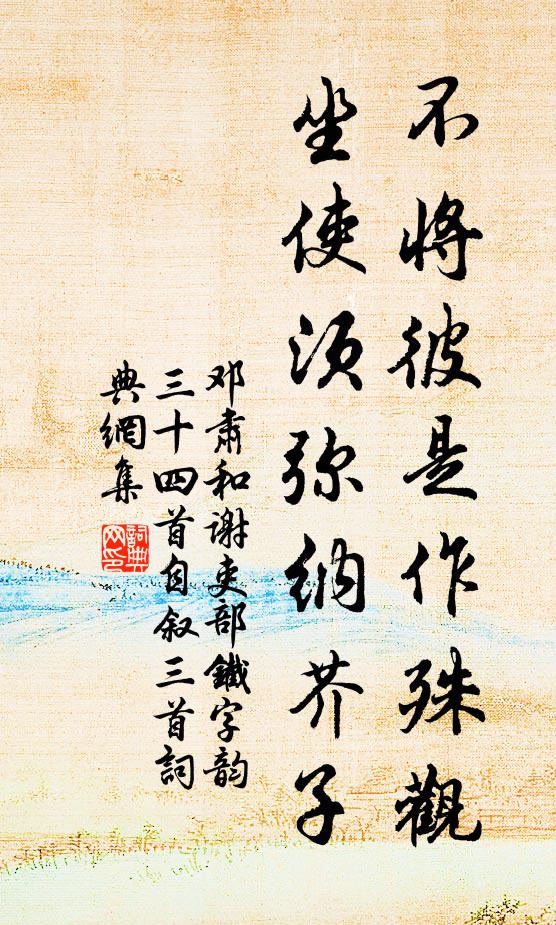 不將彼是作殊觀
坐使須弥納芥子
邓肅和謝吏部鐵字韵
三十四首自叙三首詞
典網集
詞典
网印